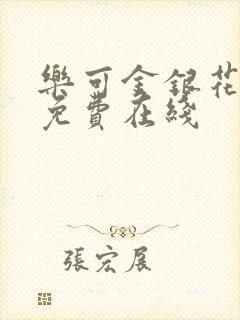 樂可金銀花
免費在綫
張宏展